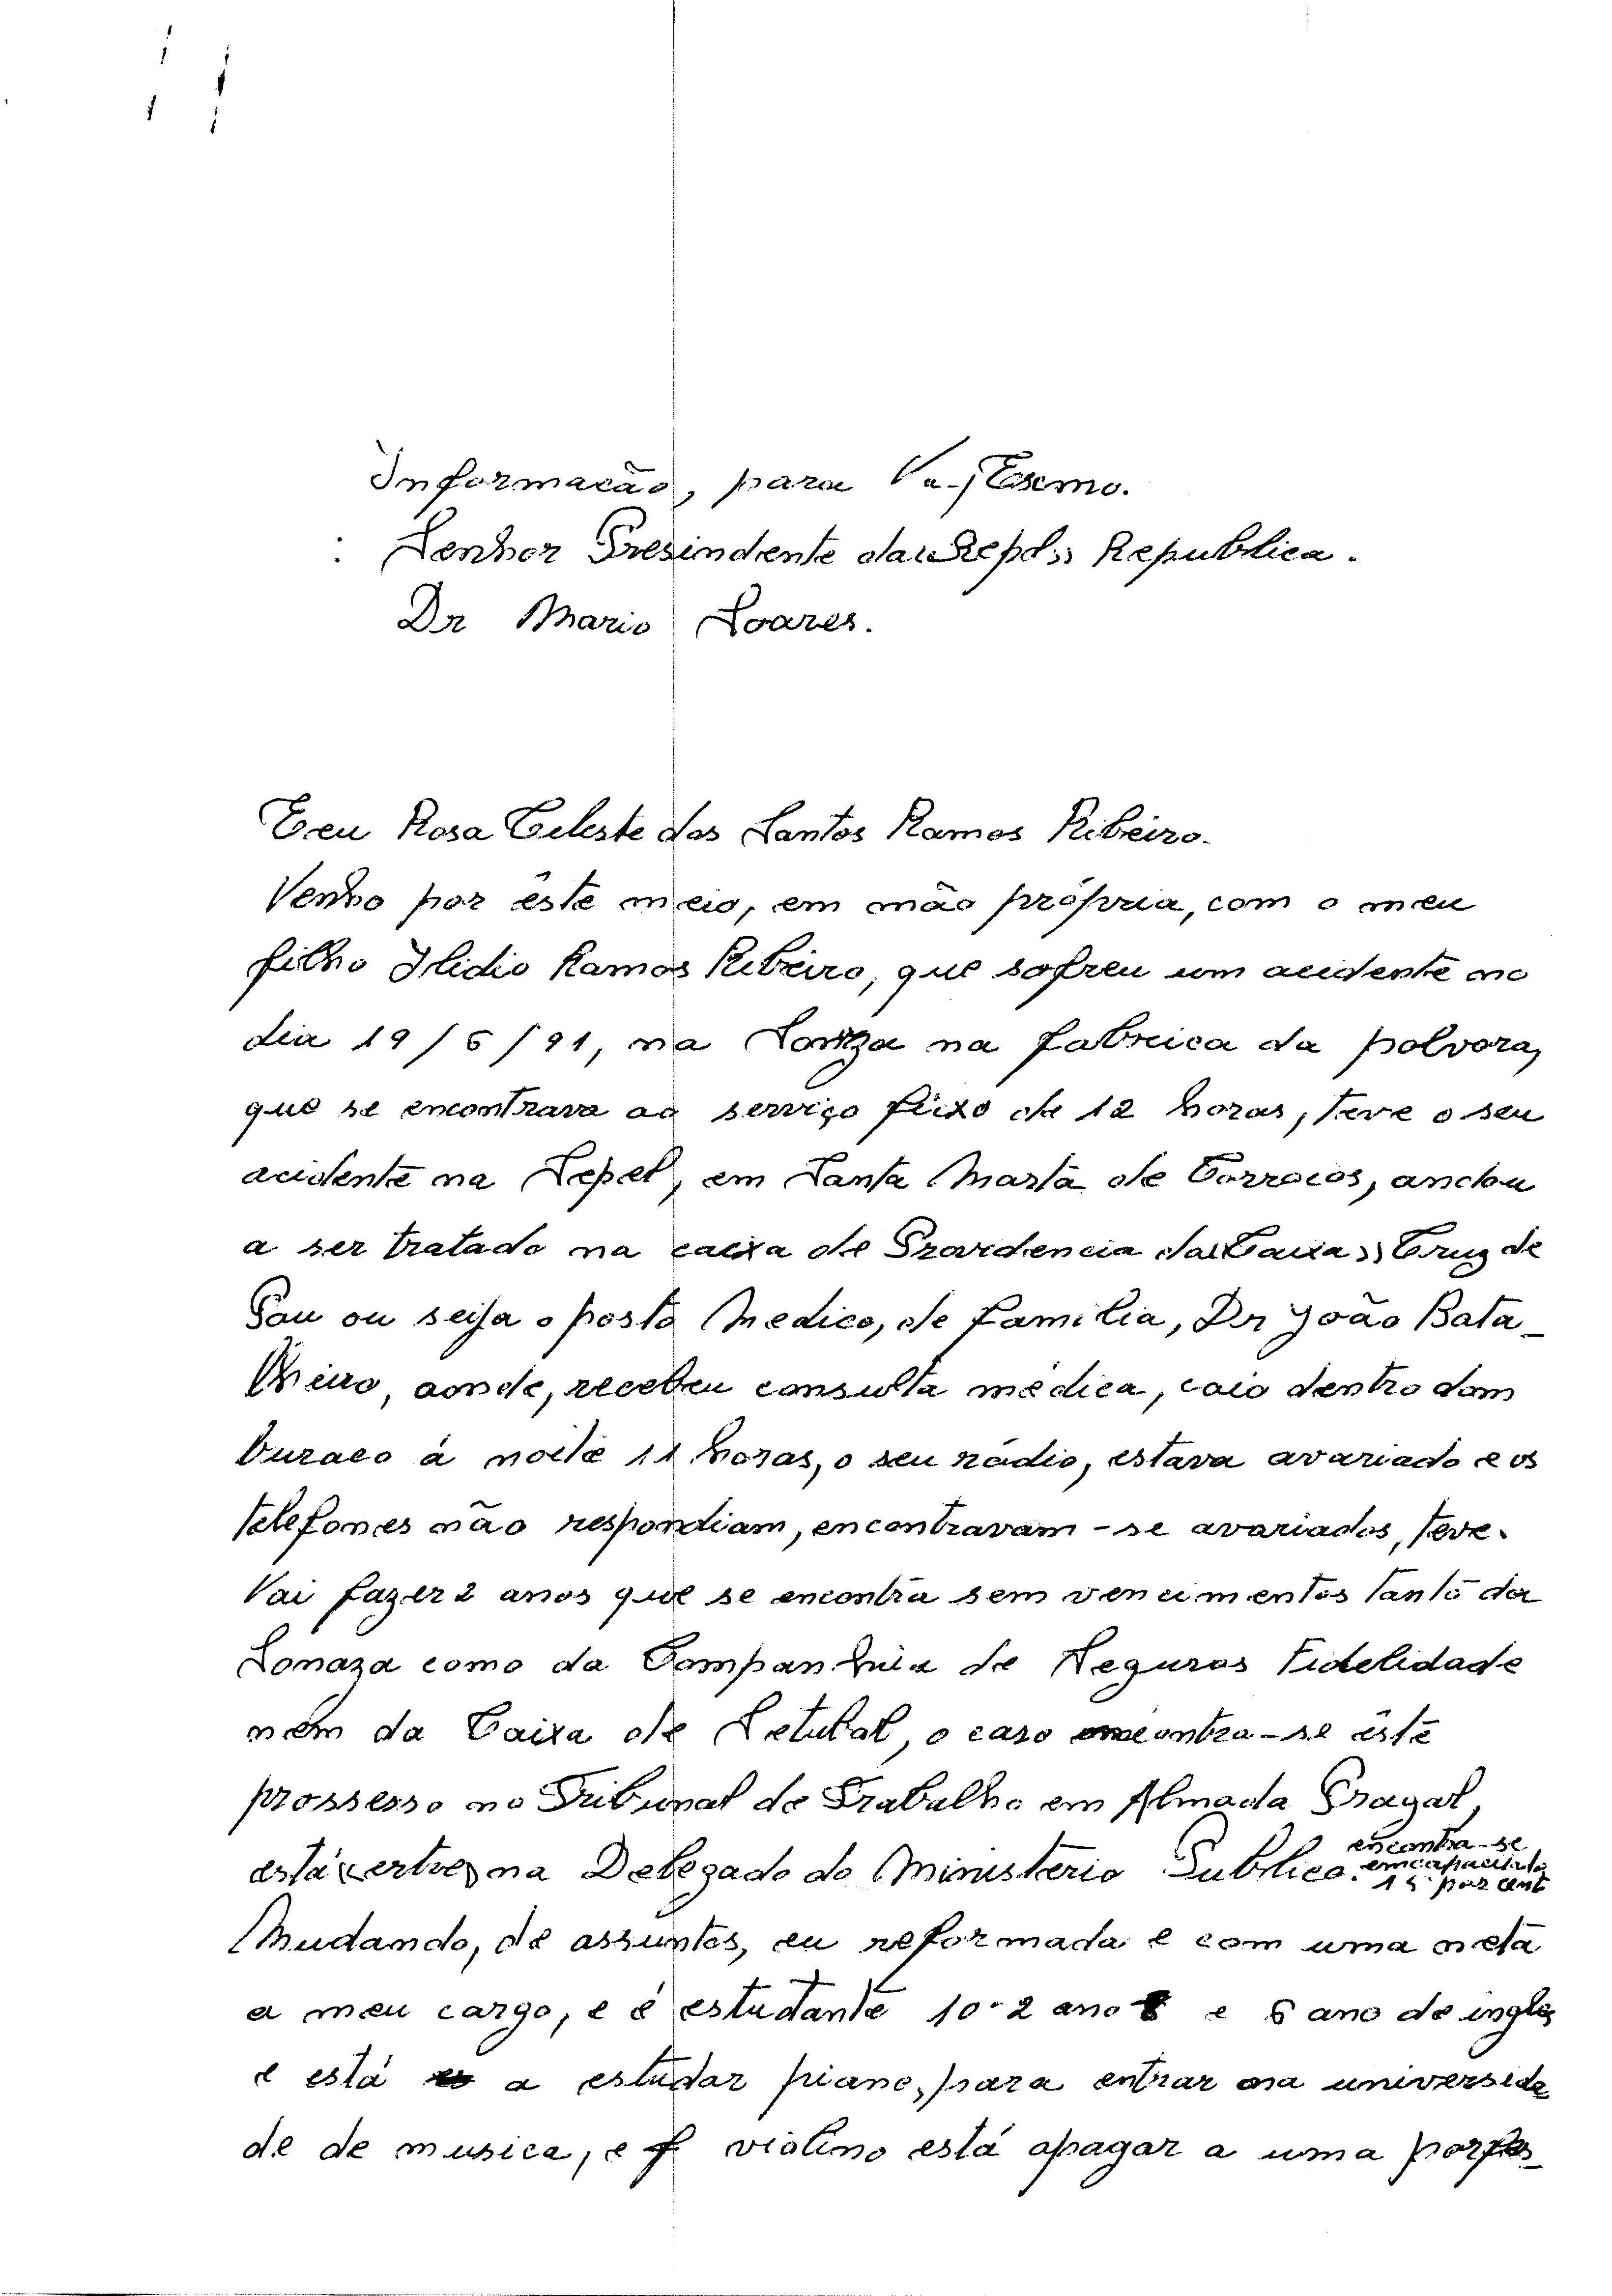 Informacão, para Va. Exmo.
Senhor Presindente da «Repd» Republica.
Dr Mario Soares.
Eeu Rosa Celeste dos Santos Ramos Ribeiro.
Venho por êste meio, em mão própria, com o meu
filho Ilidio Ramos Ribeiro, que sofreu um acidente no
dia 19/6/91, na na fabrica da polvora,
que se encontrava ao serviço fixo de 12 horas, teve o seu
acidente na Sepel, em Santa Marta de Corroios, andou
a ser tratado na caixa de Providencia da «Caixa» Cruz de
Pau ou seija o posto Medico, de familia, Dr João Bata_
lheiro, aonde, recebeu consulta médica, caio dentro dom
buraco á noite 11 horas, o seu rádio, estava avariado e os
telefones não respondiam, encontravam-se avariados, teve.
Vai fazer 2 anos que se encontra sem vencimentos tanto da
Sonaza como da Companhia de Seguros Fidelidade
nem da Caixa de Setubal, o caso encontra-se êste
prossesso no Tribunal de Trabalho em Almada Pragal,
está «entre» na Delegado do Ministério Publico. encontra-se
emcapacitado
15 por cent
Mudando, de assuntos, eu reformada e com uma neta
a meu cargo, e é estudante 10-2 ano e 6 ano de ingles
e está a estudar piano, para entrar na universida
de de musica, e violino está apagar a uma porfes_